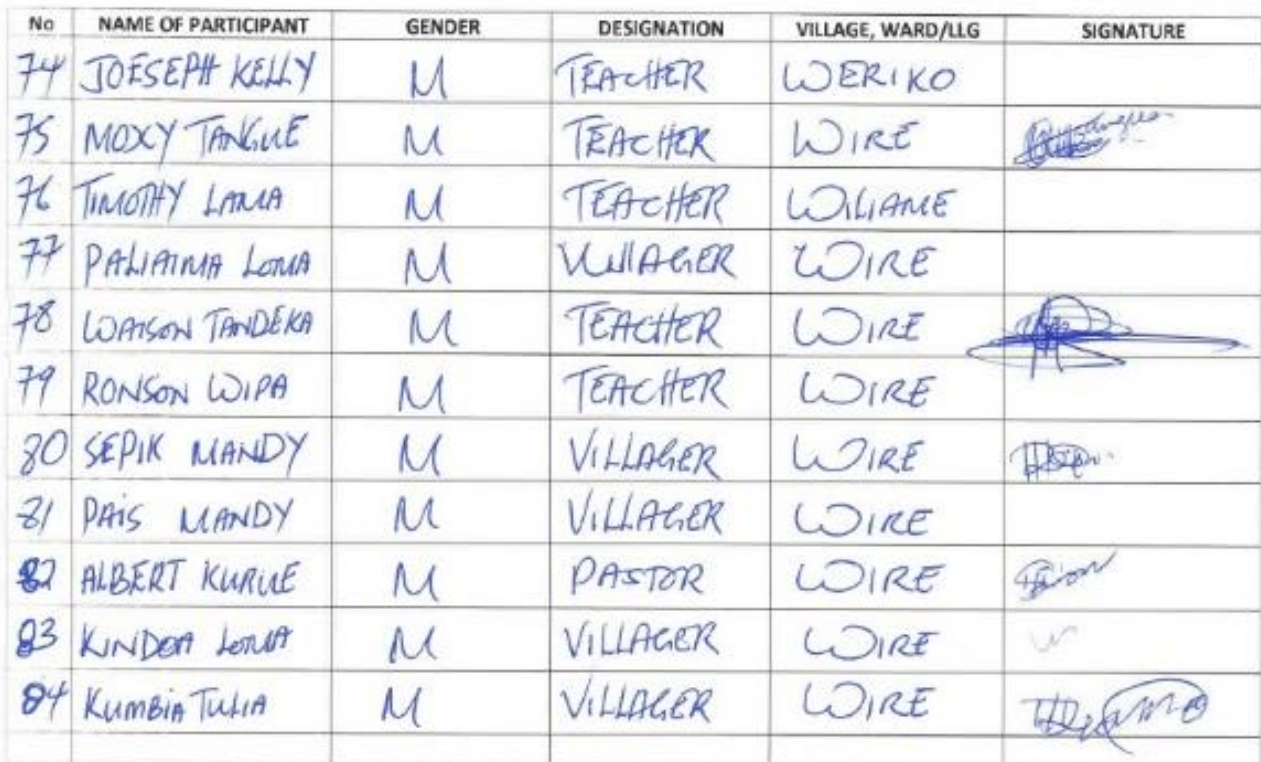 No NAME OF PARTICIPANT GENDER DESIGNATION VILLAGE, WARD/LLG SIGNATURE
74 JOESEPH KELLY M TEACHER WERIKO
75 MOXY TANGUE M TEACHER WIRE
76 TIMOTHY LAMA M TEACHER WILIAME
77 PALIAIMA LOMA M VILLAGER WIRE
78 WATSON TANDEKA M TEACHER WIRE
79 RONSON WIPA M TEACHER WIRE
80 SEPIK MANDY M VILLAGER WIRE
81 PAIS MANDY M VILLAGER WIRE
82 ALBERT KURUE M PASTOR WIRE
83 KINDOA LOMA M VILLAGER WIRE
84 KUMBIA TULIA M VILLAGER WIRE